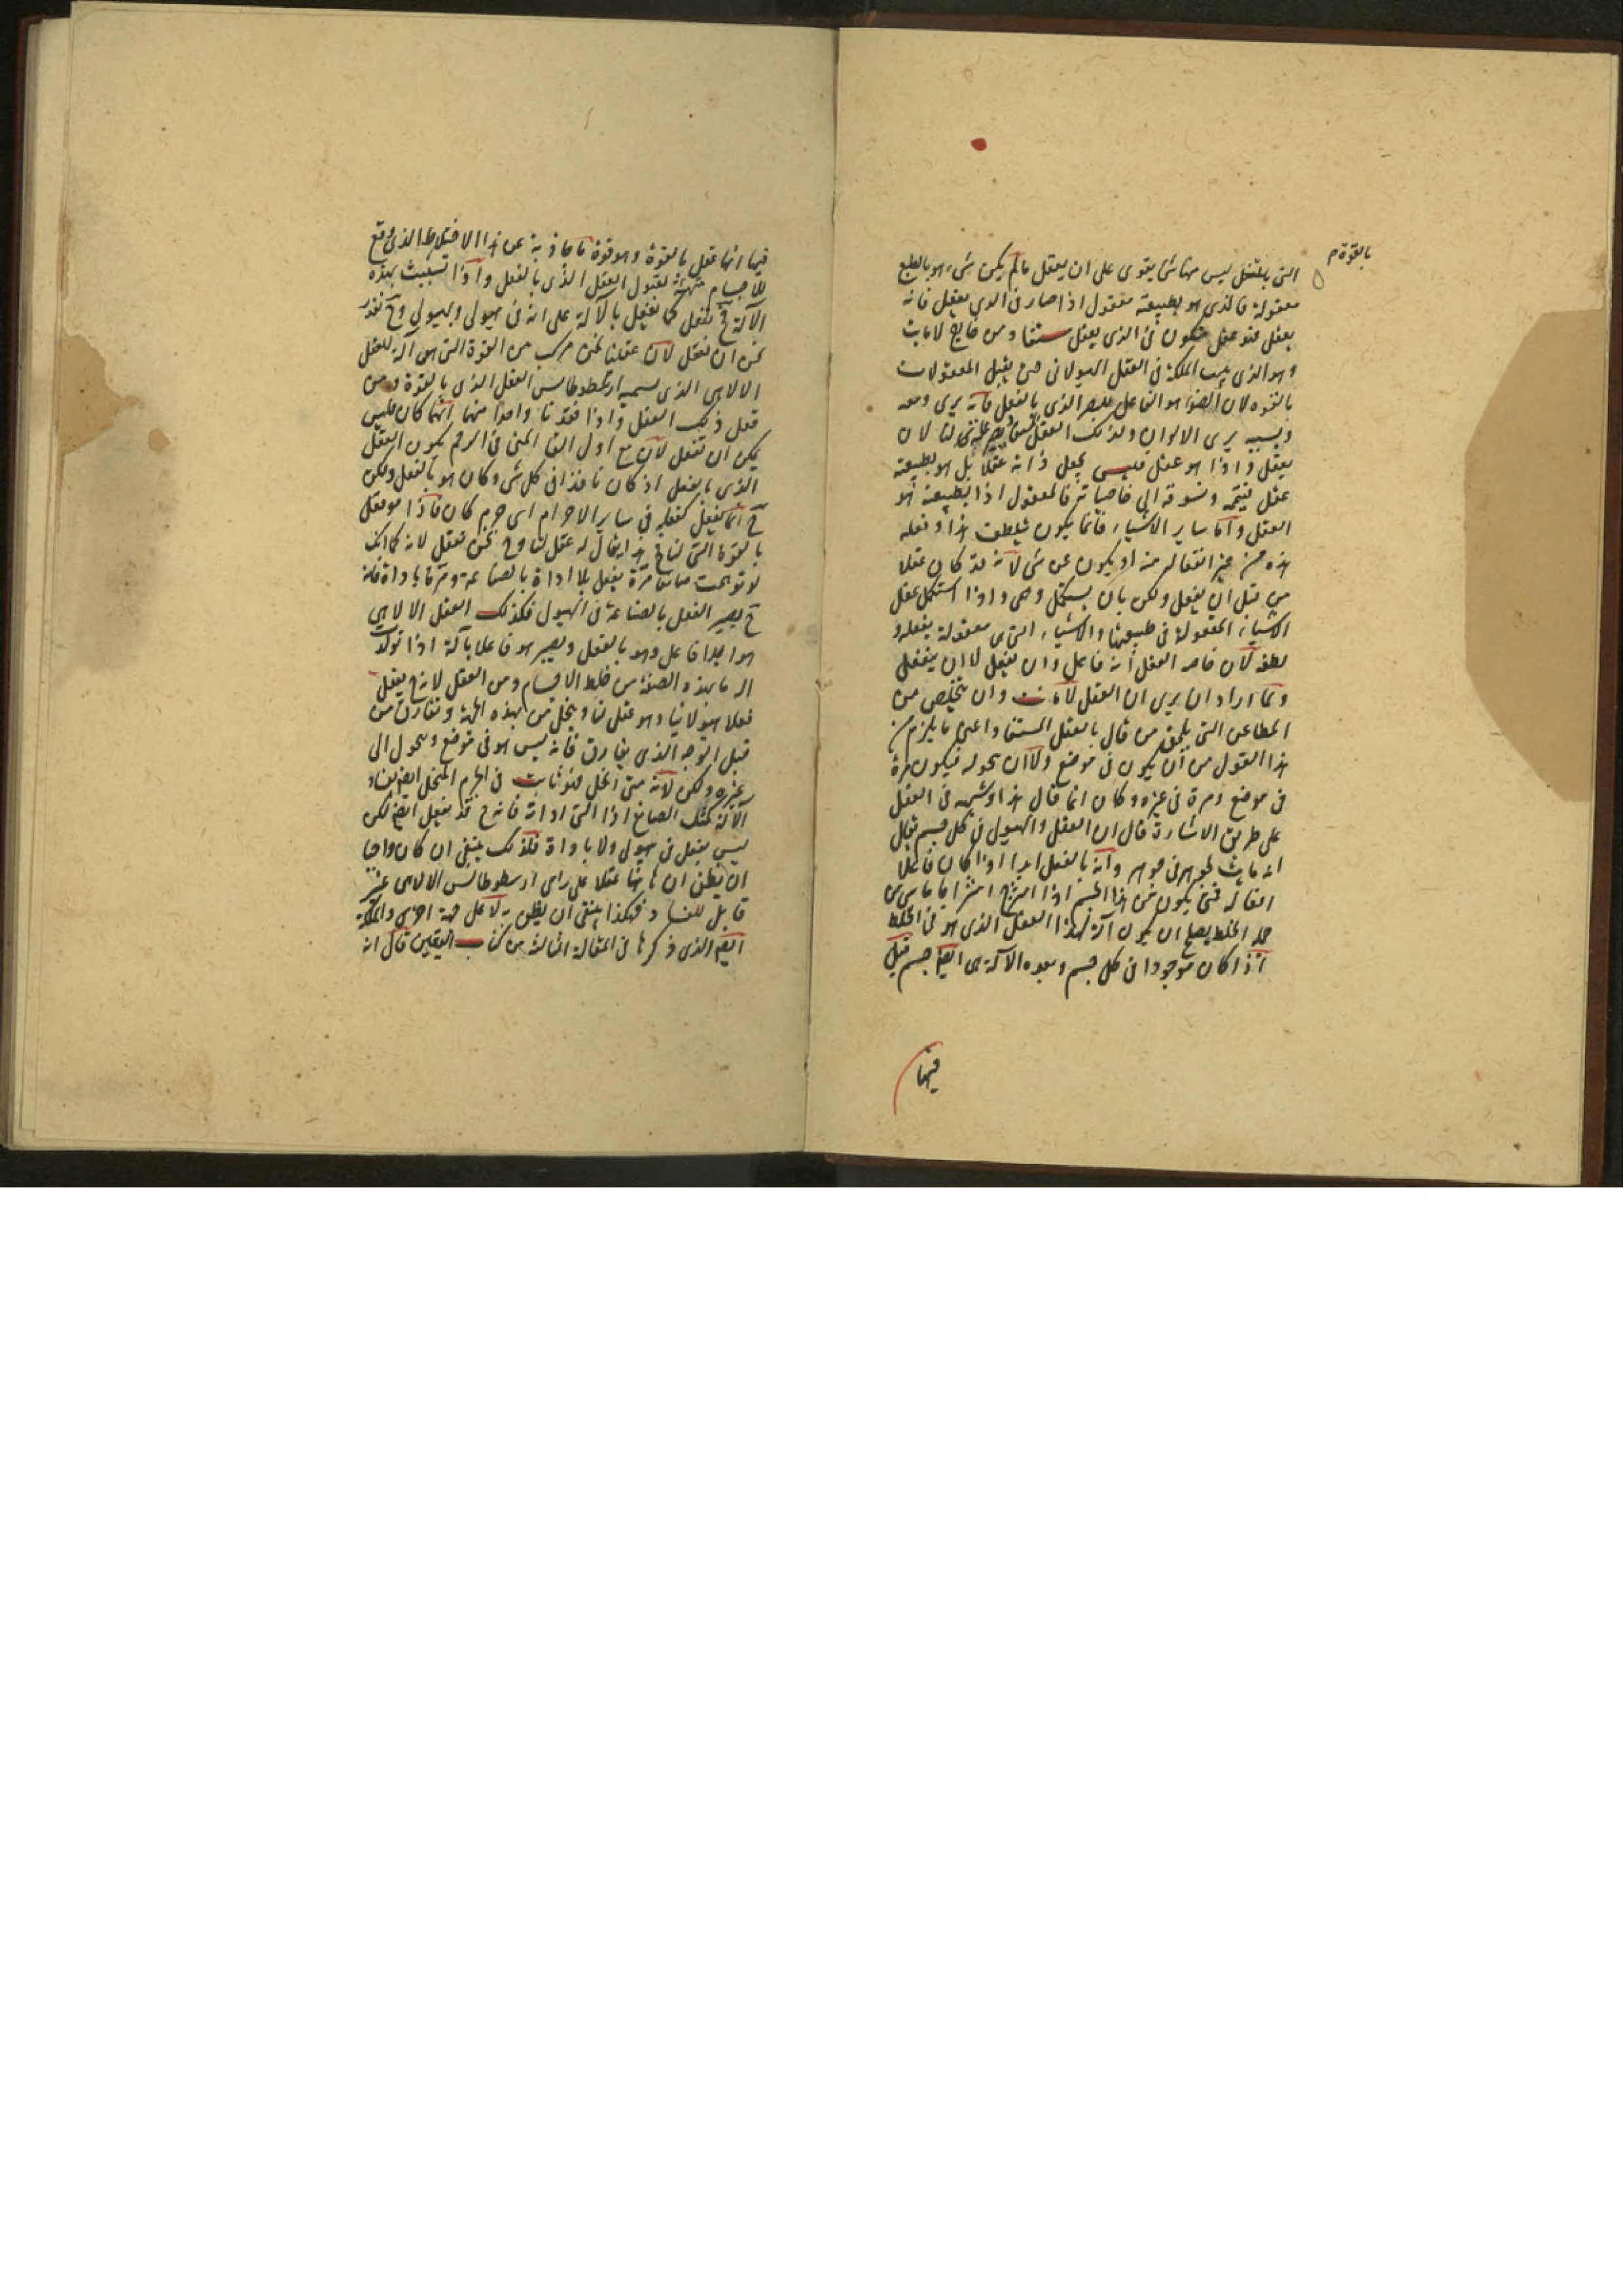 بالقوة م
التى بالفعل ليس منها شى يقوى على ان يعقل ما لم يكن شى هو بالطبع
معقولة فالذى هو بطبيعته معقول اذا صار فى الذى يعقل فانه
يعقل فهو عقل يكون فى الذى يعقل مستفاد من خارج لا مايت
وهو الذى يثبت الملكة فى العقل الهيولانى حتى يقبل المعقولات
بالقوه لان الضوء هو الفاعل للبصر الذى بالفعل فانه يرى ومعه
وبسببه يرى الالوان ولذلك العقل لنا لان
يعقل واذا هو عقل فليس يجعل ذاته عقلا بل هو بطبيعته
عقل فيتمه ونسوقه الى خاصياته فالمعقول اذا بطبيعته هو
العقل واما ساير الاشياء فانما يكون بتلطف هذا وفعله
هذه من غير انفعاله منه او يكون عن شى لانه قد كان عقلا
من قبل ان يفعل ولكن بان يستكمل وهى واذا استكمل عقل
الاشياء المعقولة فى طبيعتها والاشياء التى هى معقولة بفعله و
لطفه لان خاصه العقل انه فاعل وان يفعل لا ان ينفعل
ولما اراد ان يرى ان العقل لا مايت وان يتخلص من
المطاعن التى يلحق من قال بالعقل المستفاد اعنى ما يلزم من
هذا القول من ان يكون فى موضع ولا ان يحوله فيكون مرة
فى موضع ومرة فى غيره وكان انما قال هذا وشبهه فى العقل
على طريق الاشارة قال ان العقل والهيولى فى كل جسم يقال
انه مايث لجوهر فى جوهر وانه بالفعل ابدا اذا كان فاعلا
افعاله فمتى يكون من هذا الجسم اذا امتزج امتزاجا ما شى من
جملة الخلط يصلح ان يكون آلة لهذا العقل الذى هو فى الخلط
اذا كان موجودا فى كل جسم وهذه الآلة هى ايضا جسم قيل
فيها
فيها انها عقل بالقوة وهو قوة ما حاذية عن هذا الاختلاط الذى وقع
للاجسام متهيئة لقبول العقل الذى بالفعل واذا تشبث بهذه
الآلة ح يفعل كما يفعل بالآلة على انه فى هيولى وبهيولى وح نقدر
نحن ان نعقل لان عقلنا نحن مركب من القوة التى هى آلة للعقل
الالاهى الذى يسميه ارسطوطاليس العقل الذى بالقوة ومن
فعل ذلك العقل واذا فقدنا واحدا منهما ايهما كان فليس
يمكن ان نعقل لان مع اول القا المنى فى الرحم يكون العقل
الذى بالفعل اذ كان نافذا فى كل شى وكان هو بالفعل ولكن
ح انما يفعل كفعله فى ساير الاجرام اى جرم كان فاذا هو فعل
بالقوة التى لنا ح هذا يقال له عقل لنا وح نحن نعقل لانه كما انك
لو توهمت صانعا مرة يفعل بلا اداة بالصناعة ومرة باداة فانه
ح يصير الفعل بالصناعة فى الهيولى فكذلك العقل الالاهى
هو ابدا فاعل وهو بالعقل ويصير هو فاعلا بآلة اذا تولد
اله ما بهذه الصنعة من خلط الاجسام ومن العقل لانه ح يفعل
فعلا هيولانيا وهو عقل لنا وينحل من بهذه الجهة ويفارق من
قبل الوجه الذى يفارق فانه ليس هو فى موضع ويحول الى
غيره ولكن لانه متى انحل فهو ثابت فى الجرم المنحل ايضا بفساد
الآلة كمثل الصانع اذا القى اداته فانه ح قد يفعل ايضا لكن
ليس يفعل فى هيولى ولا باداة فكذلك ينبغى ان كان واجبا
ان يظن ان ها هنا عقلا على راى ارسطوطاليس الالاهى غير
قابل للفساد فهكذا ينبغى ان يظن به لا على جهة اخرى والملكة
ايضا الذى ذكرها فى المقالة الثالثة من كتاب اليقين قال انه